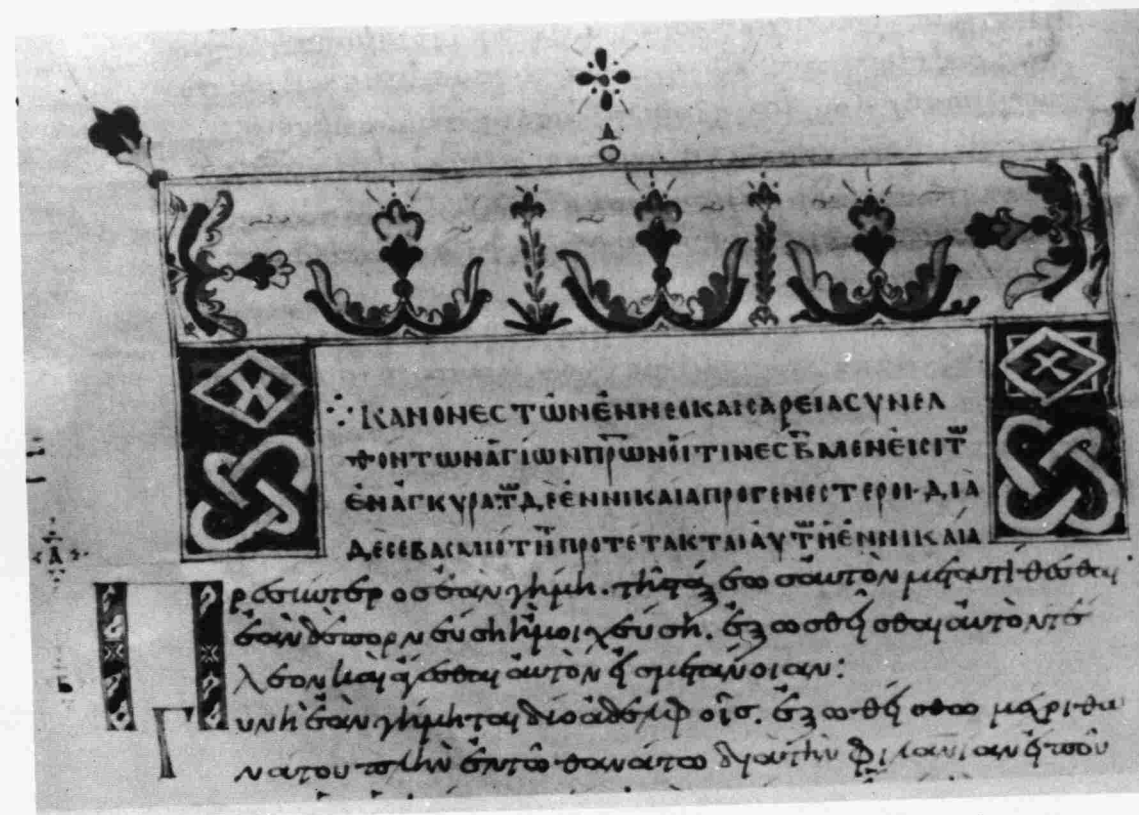 ΚΑΝΟΝΕС ΤѠΝ ἘΝ ΝΕΟΚΑΙСΑΡΕΊΑ СΥΝΕΛ
ΘΟΝΤΩΝ ἉΓΊΩΝ ΠΡΩΝ ΟἽΤΙΝΕС Β ΜΕΝ ΕἸСΙ Τ
ἘΝ ἈΓΚΎΡΑ Τ ΔΕ ἘΝ ΝΙΚΑΙΑ ΠΡΟΓΕΝΕСΤΕΡΟΙ· ΔΙΑ
ΔΕ ΠΡΟΤΕΤΑΚΤΑΙ ΑΥΤ Η ἘΝ ΝΙΚΑΊΑ
Α
Πρεσβύτερος ἐὰν γήμη. τῆς τάξεως αὐτὸν μετατίθεσθαι
ἐὰν δὲ πορνεύση ἢ μοιχεύση. ἐξωθεῖσθαι αὐτὸν τέ
λεον καὶ ἄγεσθαι αὐτὸν εἰς μετάνοιαν:
Β
Γυνὴ ἐὰν γήμηται δύο ἀδελφοῖς. ἐξωθείσθω μέχρι θα
νάτου πλὴν ἐν τῶ θανάτω διὰ τὴν φιλανίαν εἰποῦ